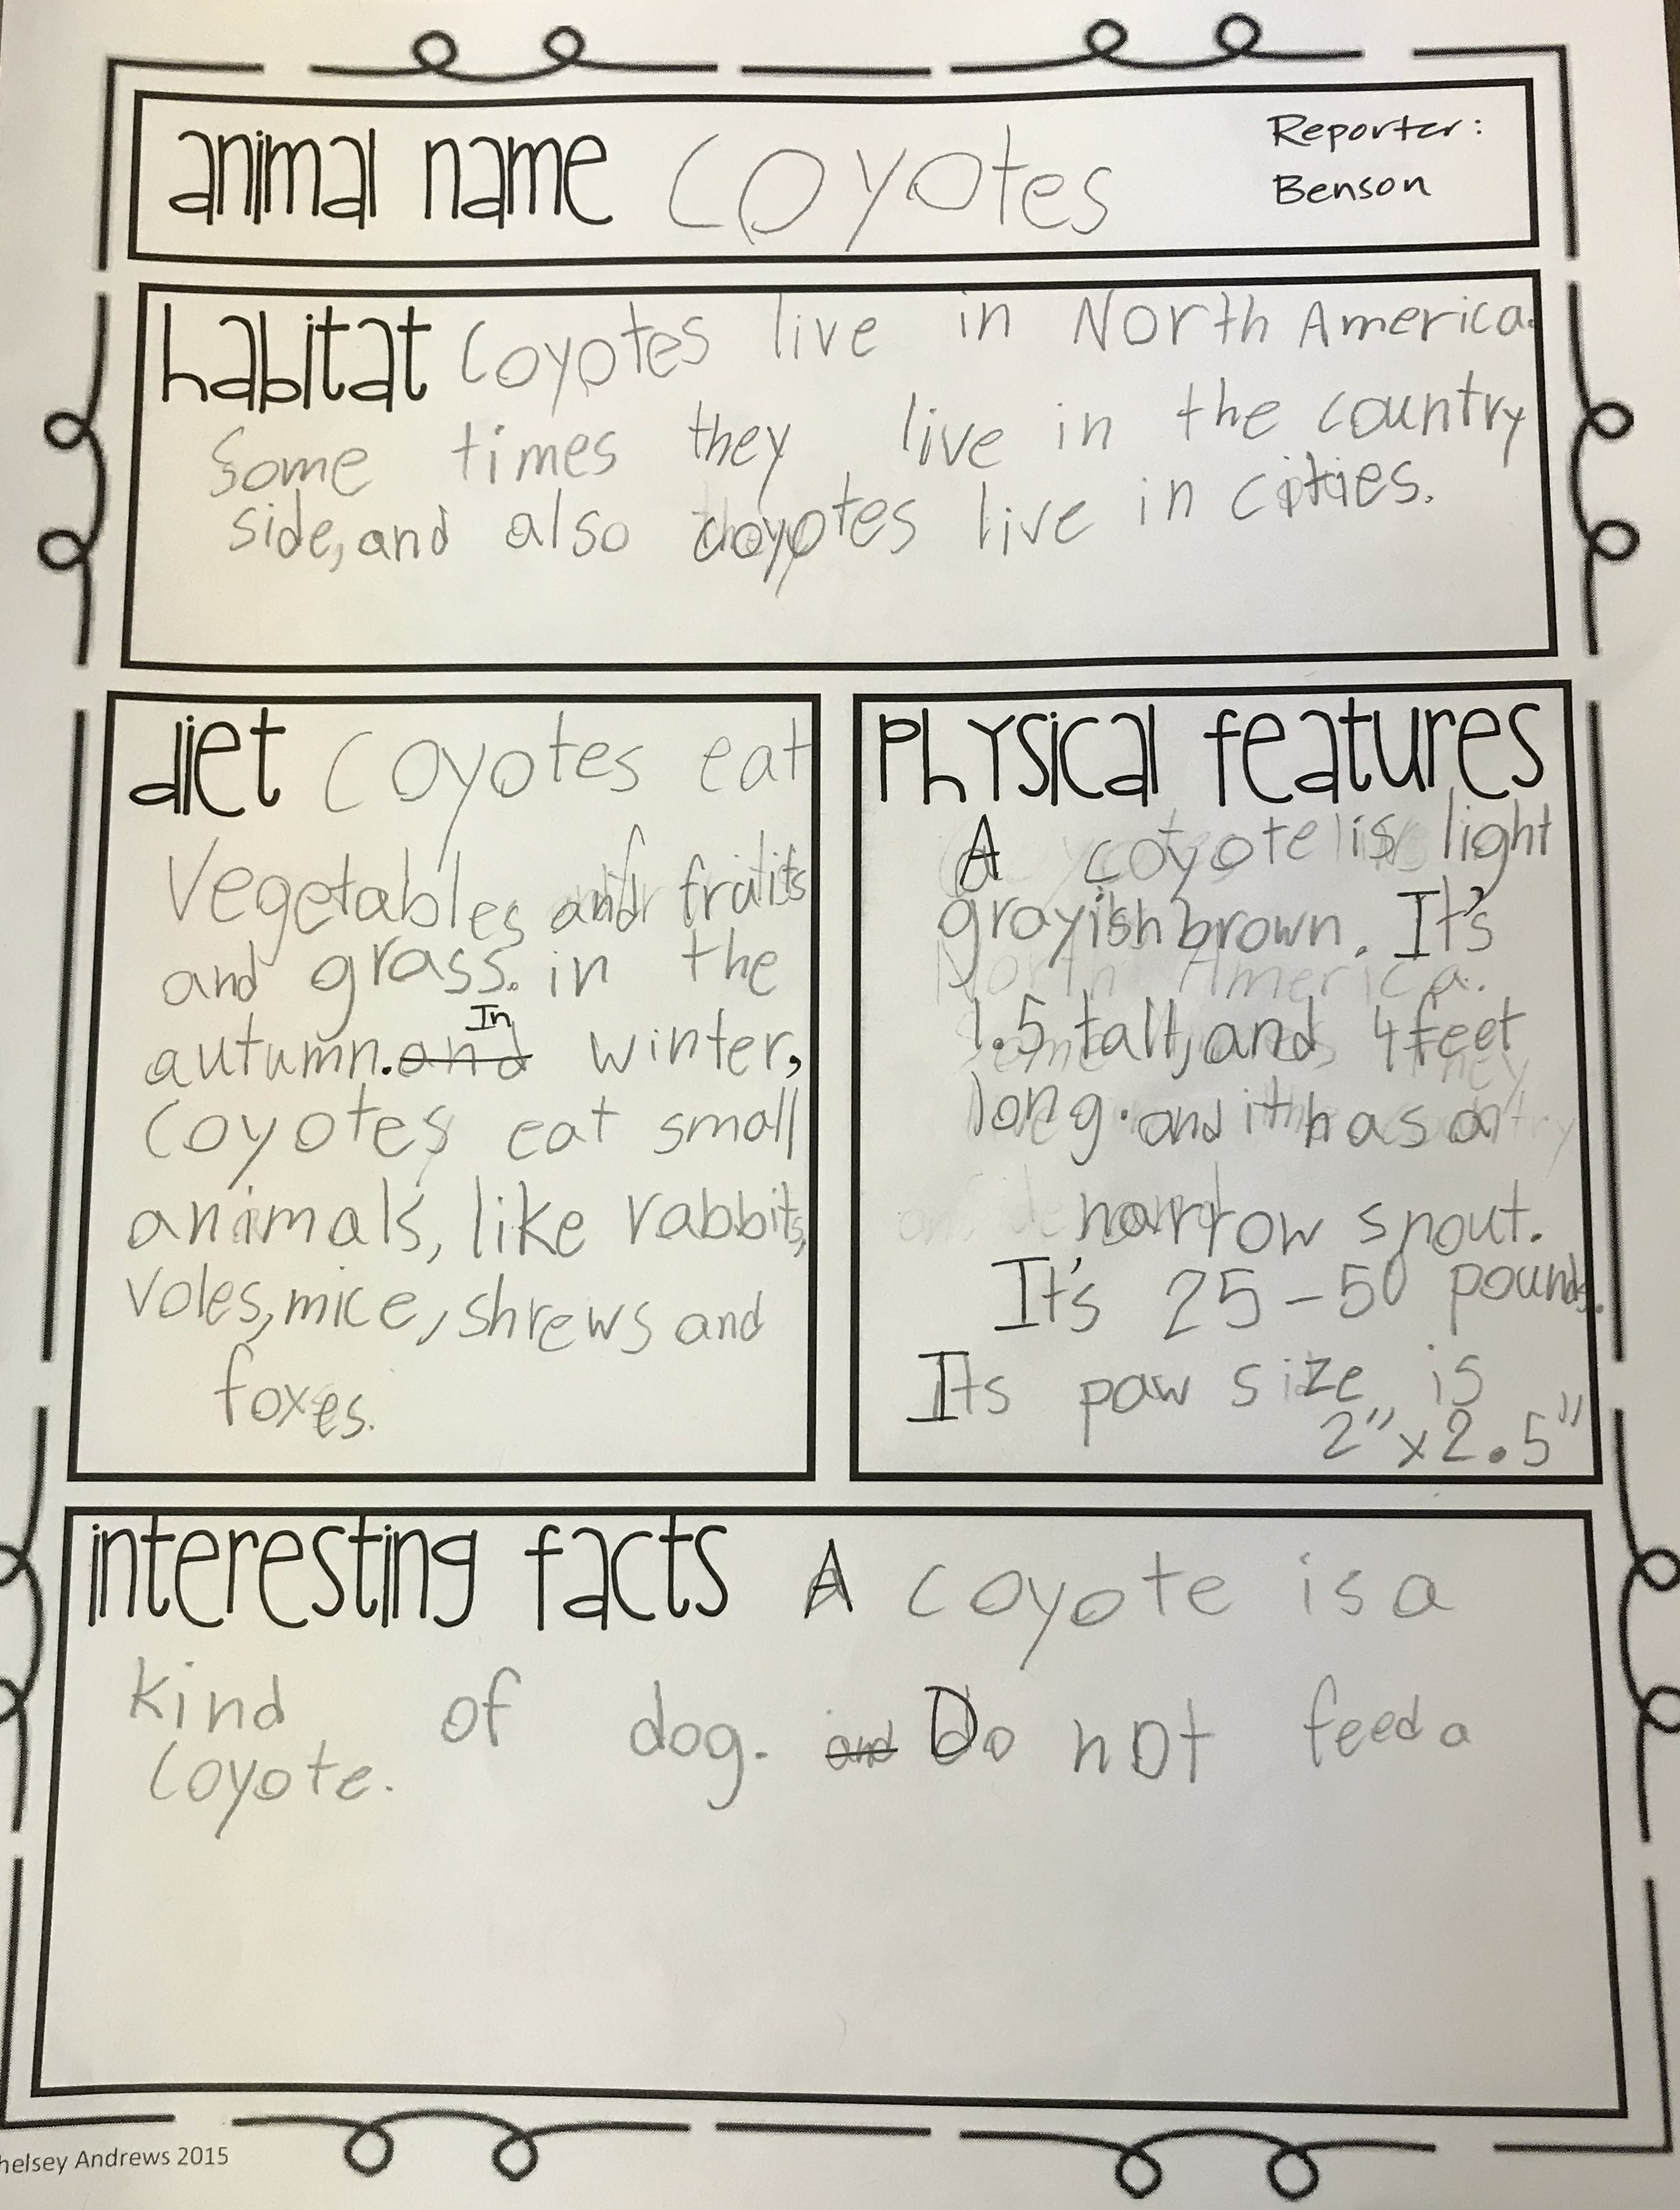 animal name Coyotes
Reporter:
Benson
habitat Coyotes live in North America.
Some times they live in the country
side, and also coyotes live in cities.
diet Coyotes eat
Vegetables and fruits
and grass. in the
In
autumn. and winter,
Coyotes eat small
animals, like rabbits,
Voles, mice, shrews and
foxes.
Physical features
A coyote is light
grayish brown. It's
1.5 tall, and 4 feet
long. and it has a
narrow snout.
It's 25-50 pounds.
Its paw size is
2" x 2.5"
interesting facts A coyote is a
kind of dog. and Do not feed a
Coyote.
helsey Andrews 2015